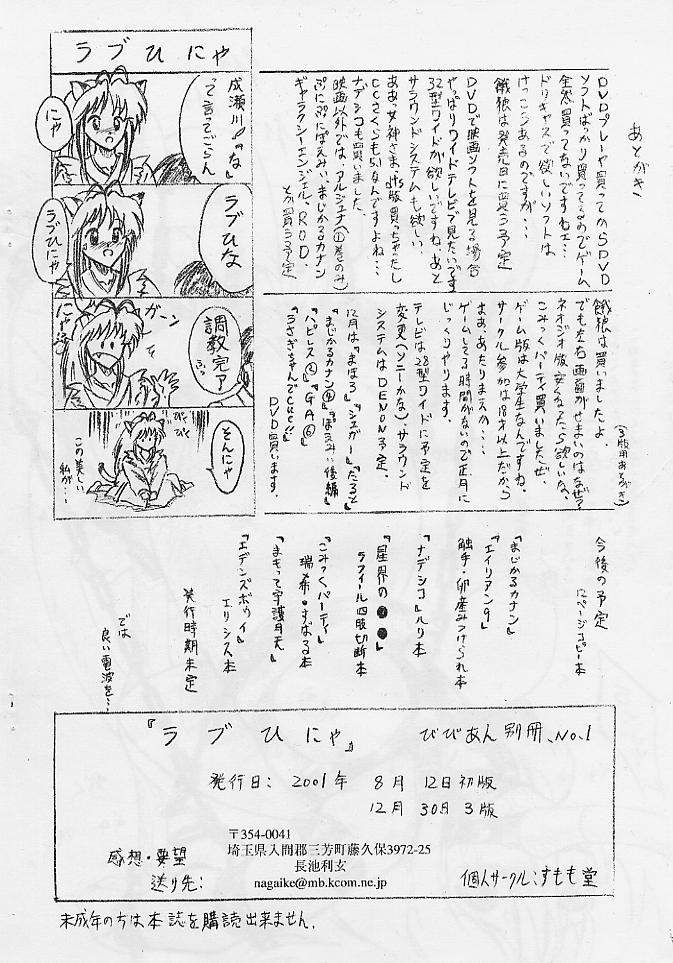 あとがき
DVDプレーヤ買ってからSDVD
ソフトばっかり買ってるのでゲーム
全然買ってないですねェ…
ドリキャスで欲しいソフトは
けっこうあるのですが…
餓狼は発売日に買う予定
DVDで映画ソフトを見る場合
やっぱりワイドテレビで見たいです
32型ワイドが欲しいですね、あと
サラウンドシステムも欲しい。
ああっ女神さまdts版買っちゃったし
CCさくらも5.1なんですよね…
ナデシコも買いました。
映画以外では、アルジェナ(①巻のみ)
ぷにぷにぽえみぃ、まじかるカナン
ギャラクシーエンジェル、R.O.D.
とか買う予定
(3版用あとがき)
餓狼は買いましたよ。
でも左右画面がせまいのはなぜ?
ネオジオ版安くなったら欲しいな。
こみっくパーティ買いましたぜ。
ゲーム版は大学生なんですね。
サークル参加は18才以上だから
まぁ、あたりまえか…
ゲームしてる時間がないので正月に
じっくりやります。
テレビは28型ワイドに予定を
変更(ソニーかな)、サラウンド
システムはDENON予定。
12月は『まほろ』『ジェガー』『だぁと』
『まじかるカナン④』『ぽえみぃ後編』
『ハピレス②』『GA⑥』
『うさぎちゃんでCue!!』
DVD買います。
ラブひにゃ
成瀬川♪『な』
って言ってごらん
にゃ
ラブひな
ラブひにゃ
ガーン
調教完了
ふっ
にゃ
びくびく
そんにゃ
この美しい
私が…
今後の予定
12ページコピー本
『まじかるカナン』
『エイリアン9』
触手・卵産みつけられ本
『ナデシコ』ルリ本
『星界の●●』
ラフィール四肢切断本
『こみっくパーティ』
瑞希・すばる本
『まもって守護月天』
『エデンズボゥイ』
エリシス本
発行時期未定
では
良い電波を…
『ラブひにゃ』 びびあん別冊、No.1
発行日: 2001年 8月 12日初版
12月 30日 3版
感想・要望
送り先:
〒354-0041
埼玉県入間郡三芳町藤久保3972-25
長池利玄
nagaike@mb.kcom.ne.jp
個人サークル:すもも堂
未成年の方は本誌を購読出来ません.